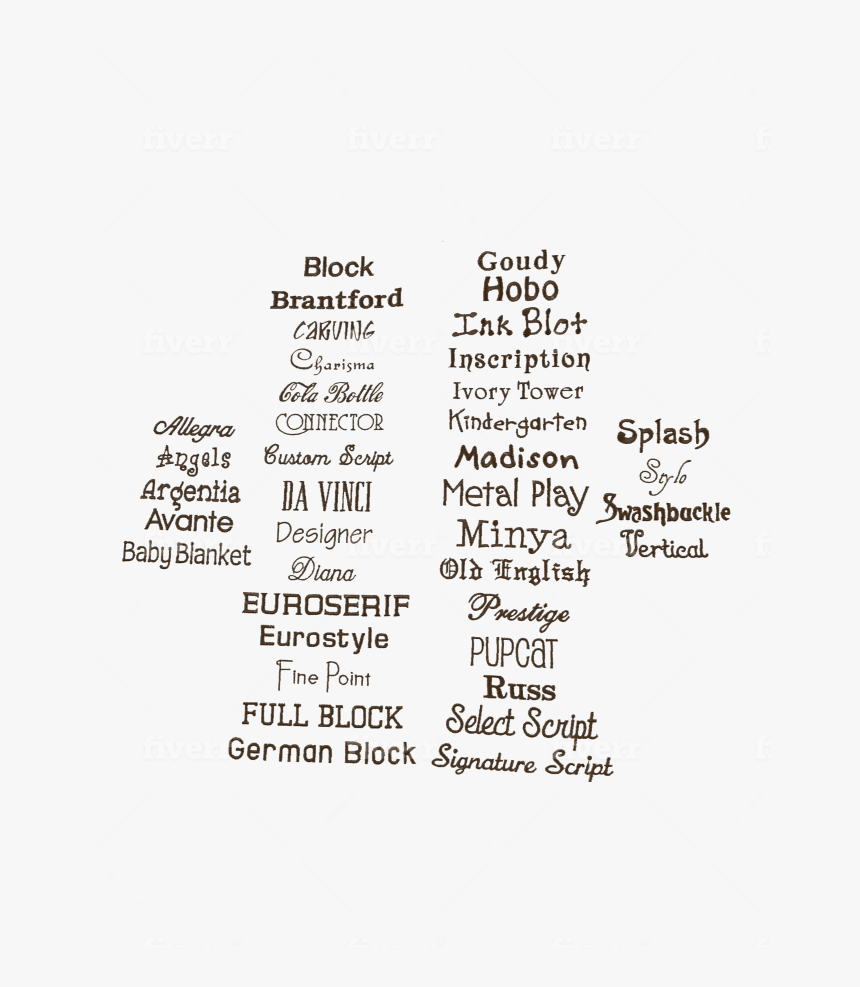 fiverr fiverr fiverr f
Allegra
Angels
Argentia
Avante
Baby Blanket
Block
Brantford
CARVING
Charisma
Cola Bottle
CONNECTOR
Custom Script
DA VINCI
Designer
Diana
EUROSERIF
Eurostyle
Fine Point
FULL BLOCK
German Block
Goudy
Hobo
Ink Blot
Inscription
Ivory Tower
Kindergarten
Madison
Metal Play
Minya
Old English
Prestige
PUPCaT
Russ
Select Script
Signature Script
Splash
Stylo
Swashbuckle
Vertical